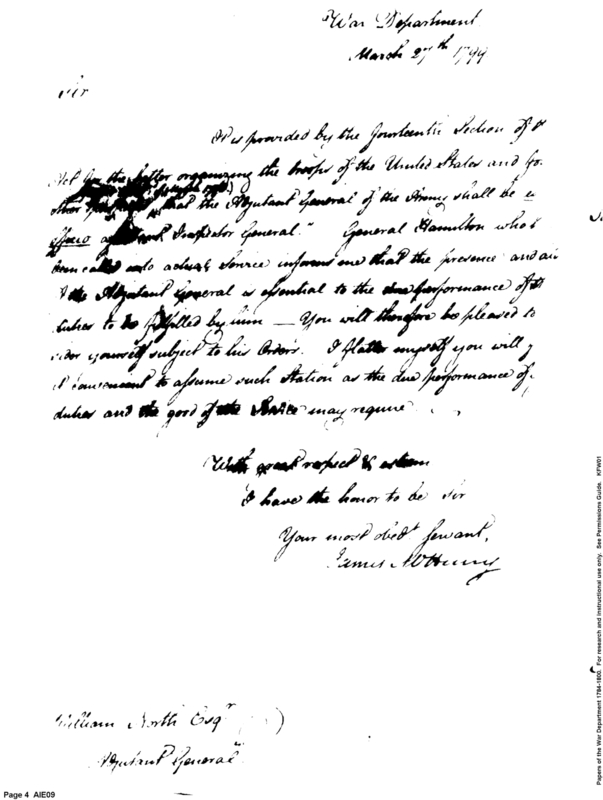 War Department
March 27th 1799
Sir
It is provided by the fourteenth Section of
Act for the better organizing the troops of the United States and for
other that the Adjutant General of the Army shall be e
officio Inspector General." General Hamilton who
been called into actual Service informs me that the presence and aid
the Adjutant General is essential to the due performance of
duties to be fulfilled by him — You will therefore be pleased to
yourself subject to his Orders. I flatter myself you will
it convenient to assume such Station as the due performance of
duties and the good of the Service may require
With great respect & esteem
I have the honor to be Sir
Your most obedt Servant,
James McHenry
William North Esqr
Adjutant General
Page 4 AIE09
Papers of the War Department 1784-1800. For research and instructional use only. See Permissions Guide. KFW01